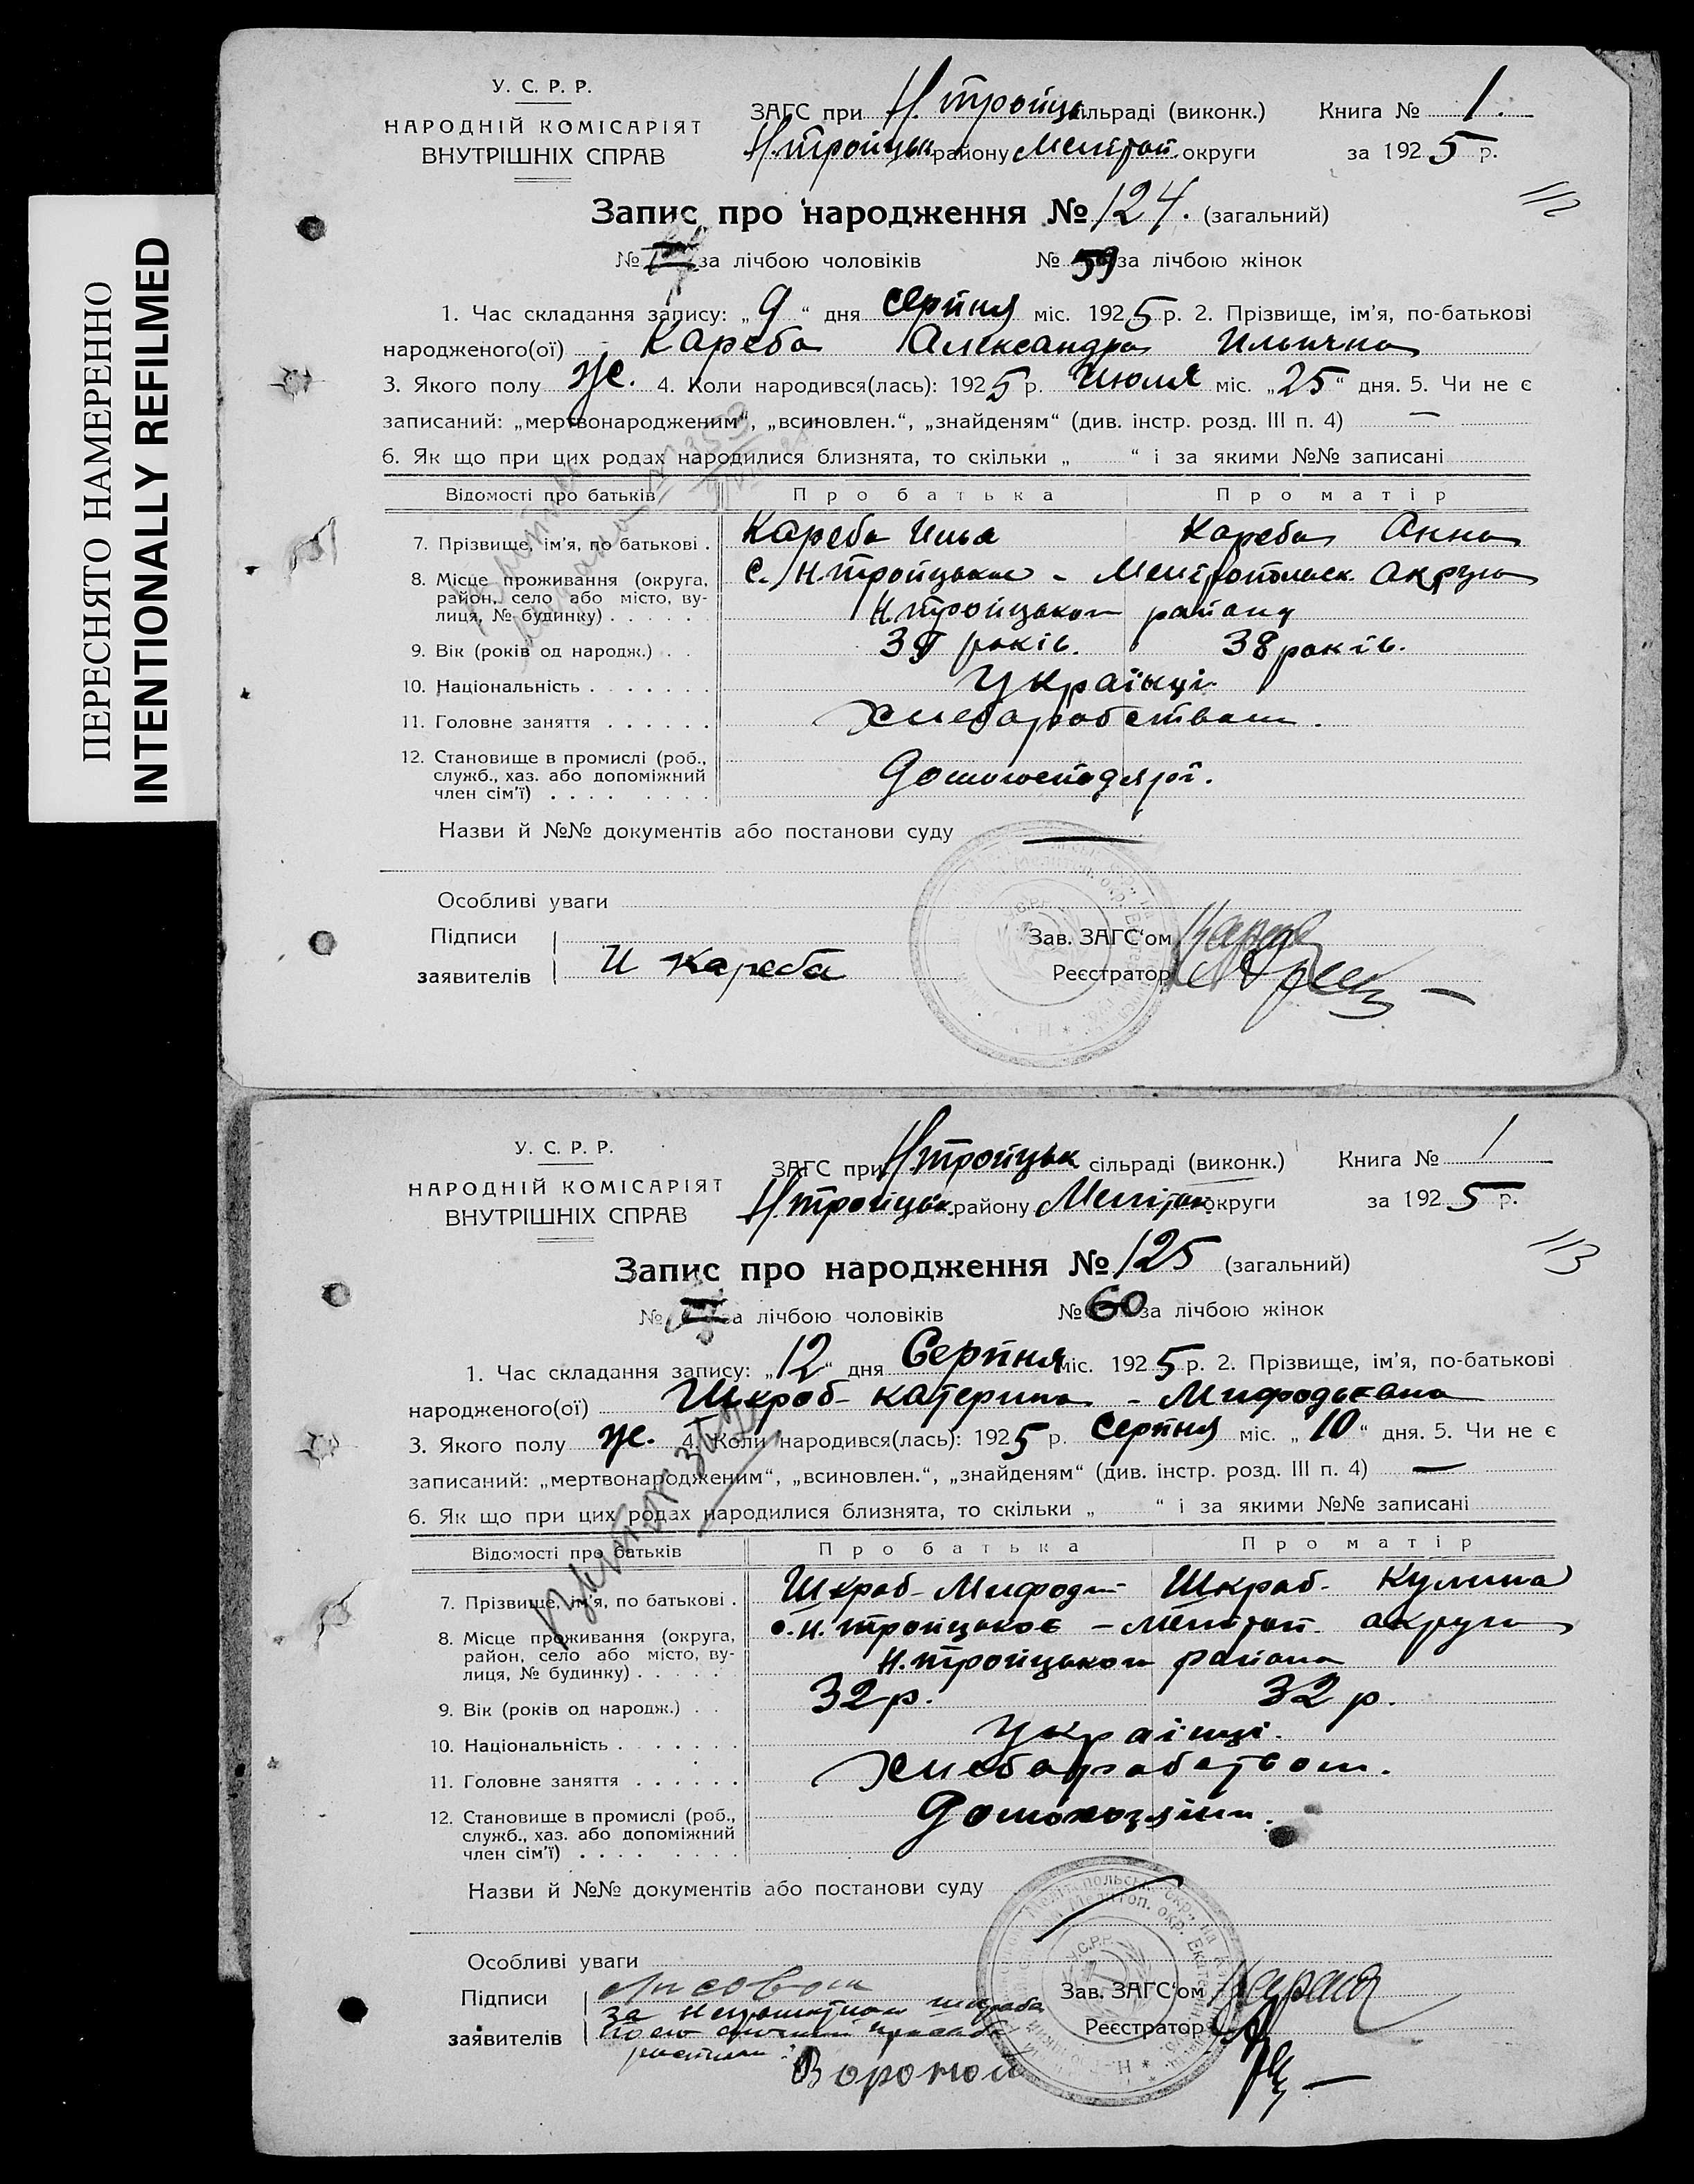 ПЕРЕСНЯТО НАМЕРЕННО
INTENTIONALLY REFILMED
У. С. Р. Р.
НАРОДНІЙ КОМІСАРІЯТ
ВНУТРІШНІХ СПРАВ
ЗАГС при Н. тройцьк сільраді (виконк.) Книга № 1.
Н.тройцьк району Меліτоп. округи за 1925 р.
112
Запис про народження № 124. (загальний)
№ за лічбою чоловіків № 59 за лічбою жінок
1. Час складання запису: „9“ дня серпня міс. 1925 р. 2. Прізвище, ім'я, по-батькові
народженого(ої) Кареба Александра Ильична
3. Якого полу же. 4. Коли народився(лась): 1925 р. Июля міс. „25“ дня. 5. Чи не є
записаний: „мертвонародженим“, „всиновлен.“, „знайденям“ (див. інстр. розд. III п. 4) —
6. Як що при цих родах народилися близнята, то скільки „ “ і за якими №№ записані
Відомості про батьків Про батька Про матір
7. Прізвище, ім'я, по батькові . Кареба Илья Кареба Анна
8. Місце проживання (округа, район, село або місто, вулиця, № будинку) . . . . . с. Н.тройцькое - Мелітопольск. Акруга
Н.тройцького району
9. Вік (років од народж.) . . 39 років. 38 років.
10. Національність . . . . . . . Українці
11. Головне заняття . . . . . . хлебаработвам.
12. Становище в промислі (роб., служб., хаз. або допоміжний член сім'ї) . . . . . . . . Домогосподарі.
Назви й №№ документів або постанови суду —
Особливі уваги
Підписи
заявителів И Кареба
Зав. ЗАГС'ом
Реєстратор
У. С. Р. Р.
НАРОДНІЙ КОМІСАРІЯТ
ВНУТРІШНІХ СПРАВ
ЗАГС при Н.тройцьк сільраді (виконк.) Книга № 1
Н.тройцьк. району Меліτоп. округи за 1925 р.
113
Запис про народження № 125 (загальний)
№ за лічбою чоловіків № 60 за лічбою жінок
1. Час складання запису: „12“ дня Серпня міс. 1925 р. 2. Прізвище, ім'я, по-батькові
народженого(ої) Шкроб - Катерина - Мифодьевна
3. Якого полу же. 4. Коли народився(лась): 1925 р. Серпня міс. „10“ дня. 5. Чи не є
записаний: „мертвонародженим“, „всиновлен.“, „знайденям“ (див. інстр. розд. III п. 4) —
6. Як що при цих родах народилися близнята, то скільки „ “ і за якими №№ записані
Відомості про батьків Про батька Про матір
7. Прізвище, ім'я, по батькові . Шкроб - Мифоди Шкроб - Кулина
8. Місце проживання (округа, район, село або місто, вулиця, № будинку) . . . . . с. Н. тройцькоє - Мелітоп. акруги
Н.тройцького района
9. Вік (років од народж.) . . 32 р. 32 р.
10. Національність . . . . . . . Українці.
11. Головне заняття . . . . . . хлебаработвом.
12. Становище в промислі (роб., служб., хаз. або допоміжний член сім'ї) . . . . . . . . Домохозяіни.
Назви й №№ документів або постанови суду
Особливі уваги
Підписи
заявителів за неграмотнаго шкраба
по его личной просьбе
Вороной
Зав. ЗАГС'ом
Реєстратор